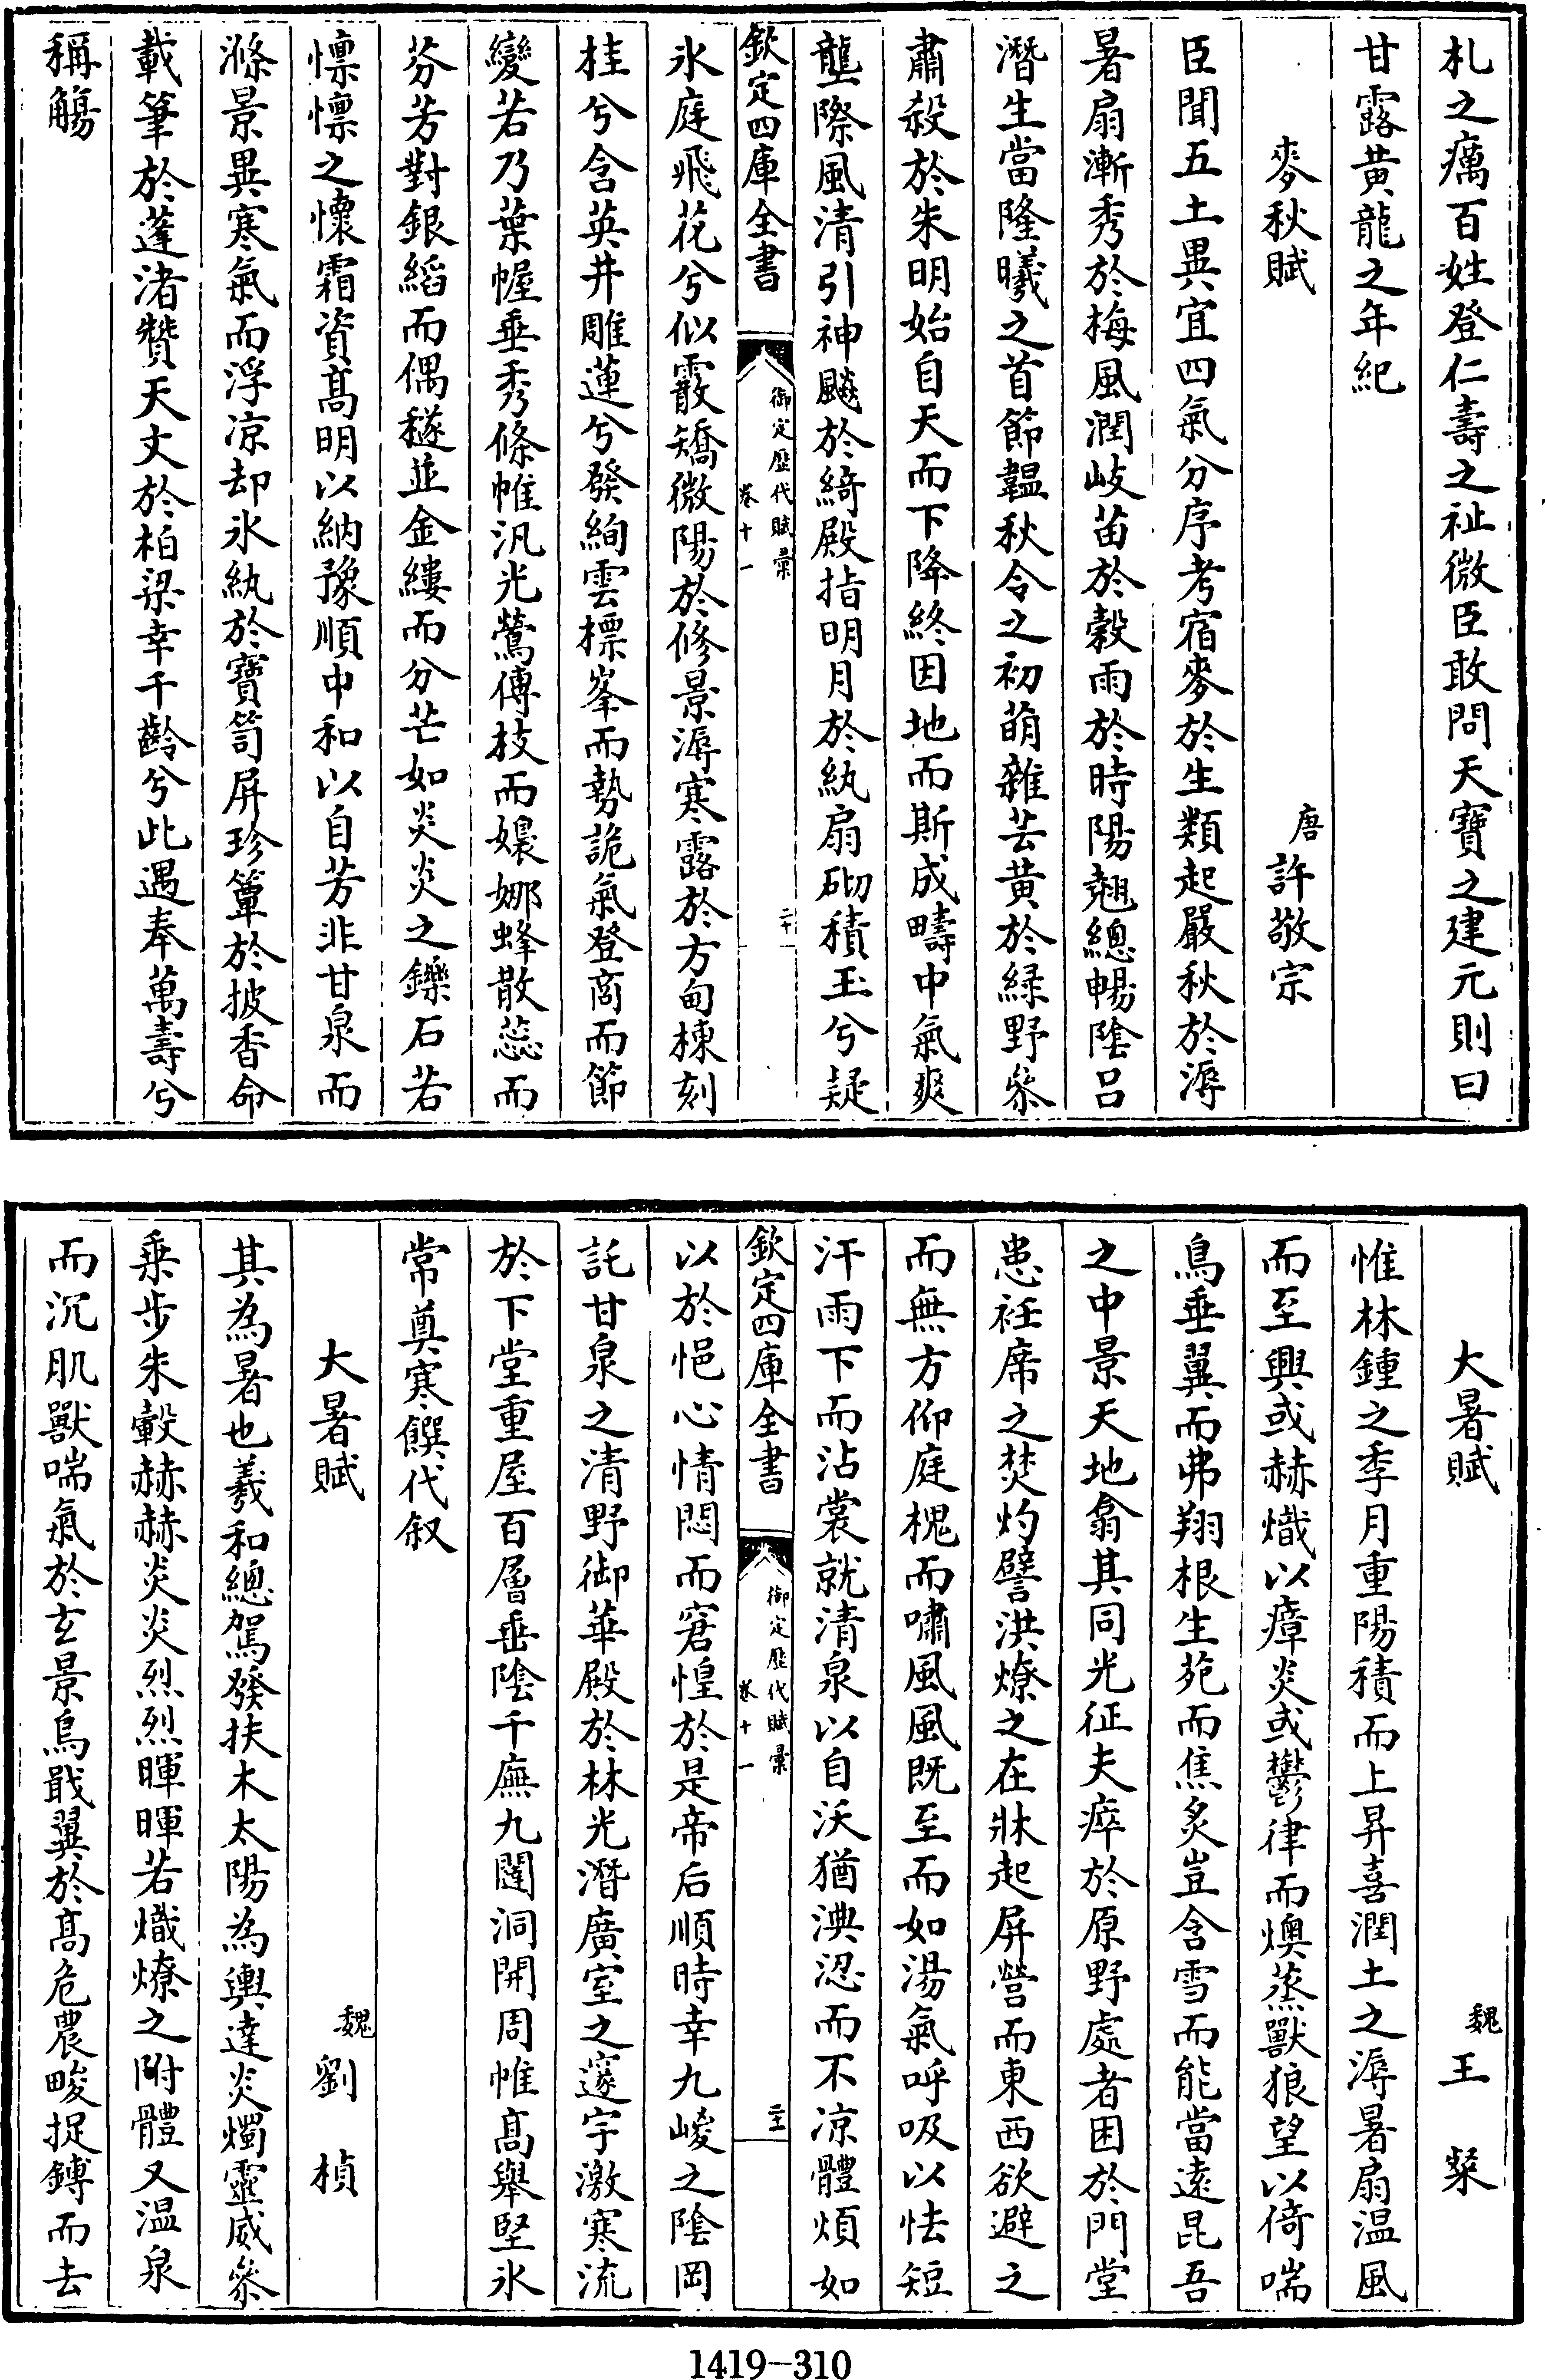 札之癘百姓登仁壽之祉微臣敢問天寶之建元則曰
甘露黄龍之年紀
麥秋賦
唐許敬宗
臣聞五土異宜四氣分序考宿麥於生類起嚴秋於溽
暑扇漸秀於梅風潤岐苗於榖雨於時陽翹總暢隂吕
潛生當隆曦之首節韞秋令之初萌雜芸黄於緑野叅
肅殺於朱明始自天而下降終因地而斯成疇中氣爽
壟際風清引神飈於綺殿指明月於紈扇砌積玉兮疑
欽定四庫全書
御定歴代賦彙
卷十一
二十
氷庭飛花兮似霰矯微陽於修景溽寒露於方甸棟刻
桂兮含英井雕蓮兮發絢雲標峯而勢詭氣登啇而節
變若乃葉幄垂秀條帷汎光鶯傳枝而嬝娜蜂散蕊而
芬芳對銀縚而偶穟並金縷而分芒如炎炎之鑠石若
懍懍之懷霜資髙明以納豫順中和以自芳非甘泉而
滌景異寒氣而浮凉却氷紈於寶笥屏珍簟於披香命
載筆於蓬渚贊天文於柏梁幸千齡兮此遇奉萬壽兮
稱觴
大暑賦
魏王粲
惟林鍾之季月重陽積而上昇喜潤土之溽暑扇温風
而至興或赫熾以瘴炎或鬱律而燠蒸獸狼望以倚喘
鳥垂翼而弗翔根生苑而焦炙豈含雪而能當逺昆吾
之中景天地翕其同光征夫瘁於原野處者困於門堂
患袵席之焚灼譬洪燎之在牀起屏營而東西欲避之
而無方仰庭槐而嘯風風既至而如湯氣呼吸以怯短
汗雨下而沾裳就清泉以自沃猶淟涊而不凉體煩如
欽定四庫全書
御定歴代賦彙
卷十一
二十一
以於悒心情悶而窘惶於是帝后順時幸九嵕之隂岡
託甘泉之清野御華殿於林光潛廣室之邃宇激寒流
於下堂重屋百層垂隂千廡九闥洞開周帷髙舉堅氷
常奠寒饌代叙
大暑賦
魏劉楨
其為暑也羲和總駕發扶木太陽為輿達炎燭靈威叅
乗步朱轂赫赫炎炎烈烈暉暉若熾燎之附體又温泉
而沉肌獸喘氣於玄景鳥戢翼於髙危農畯捉鎛而去
1419-310